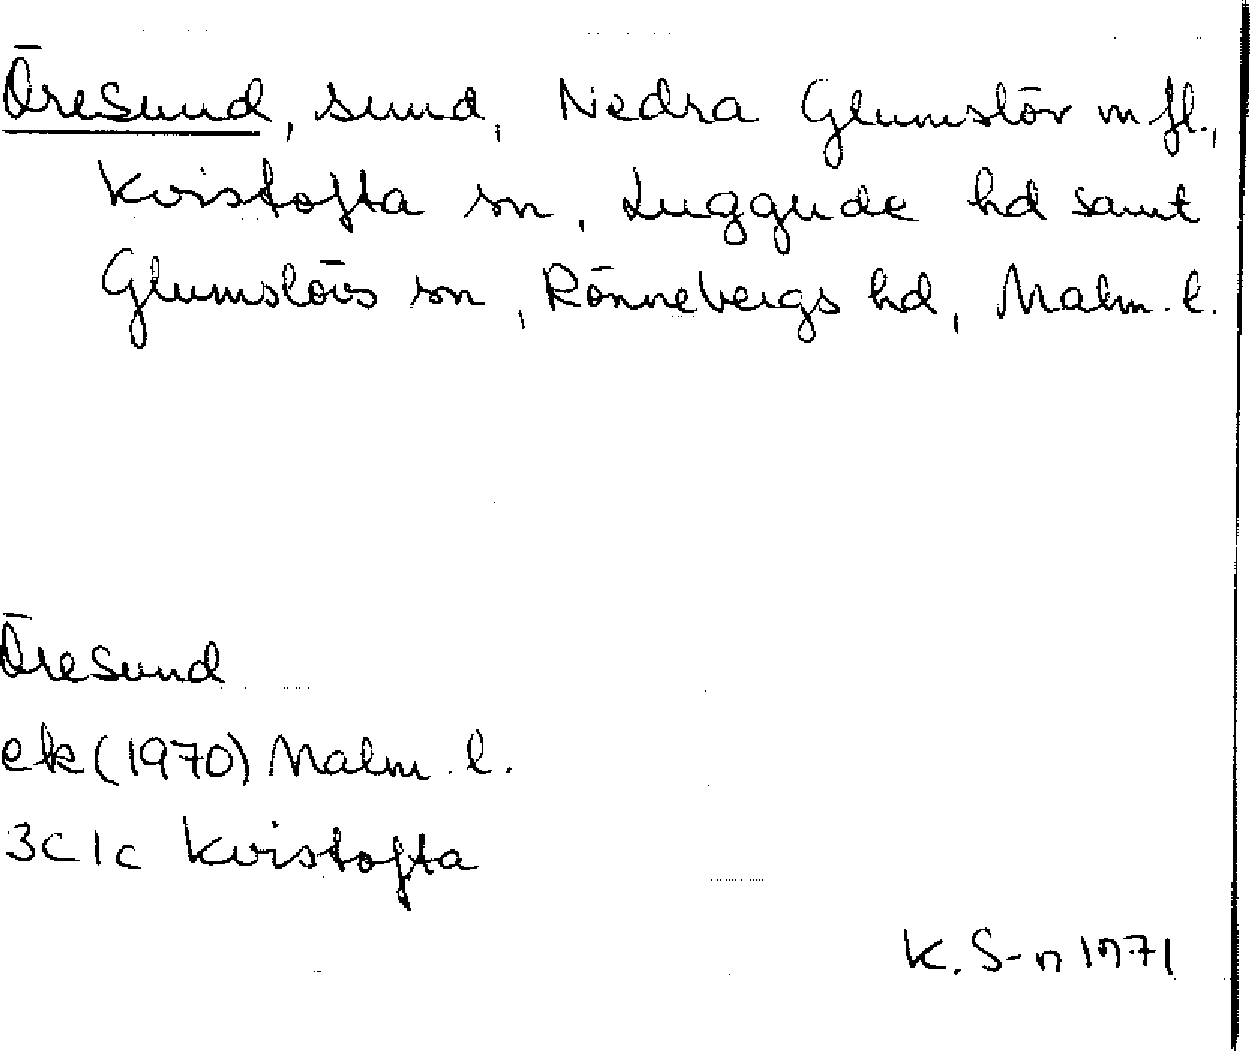 Öresund, sund, Nedra Glumslöv m fl.,
Kvistofta sn, Luggude hd samt
Glumslövs sn, Rönnebergs hd, Malm. l.
Öresund
ek (1970) Malm. l.
3C 1c Kvistofta
K. S-n 1971